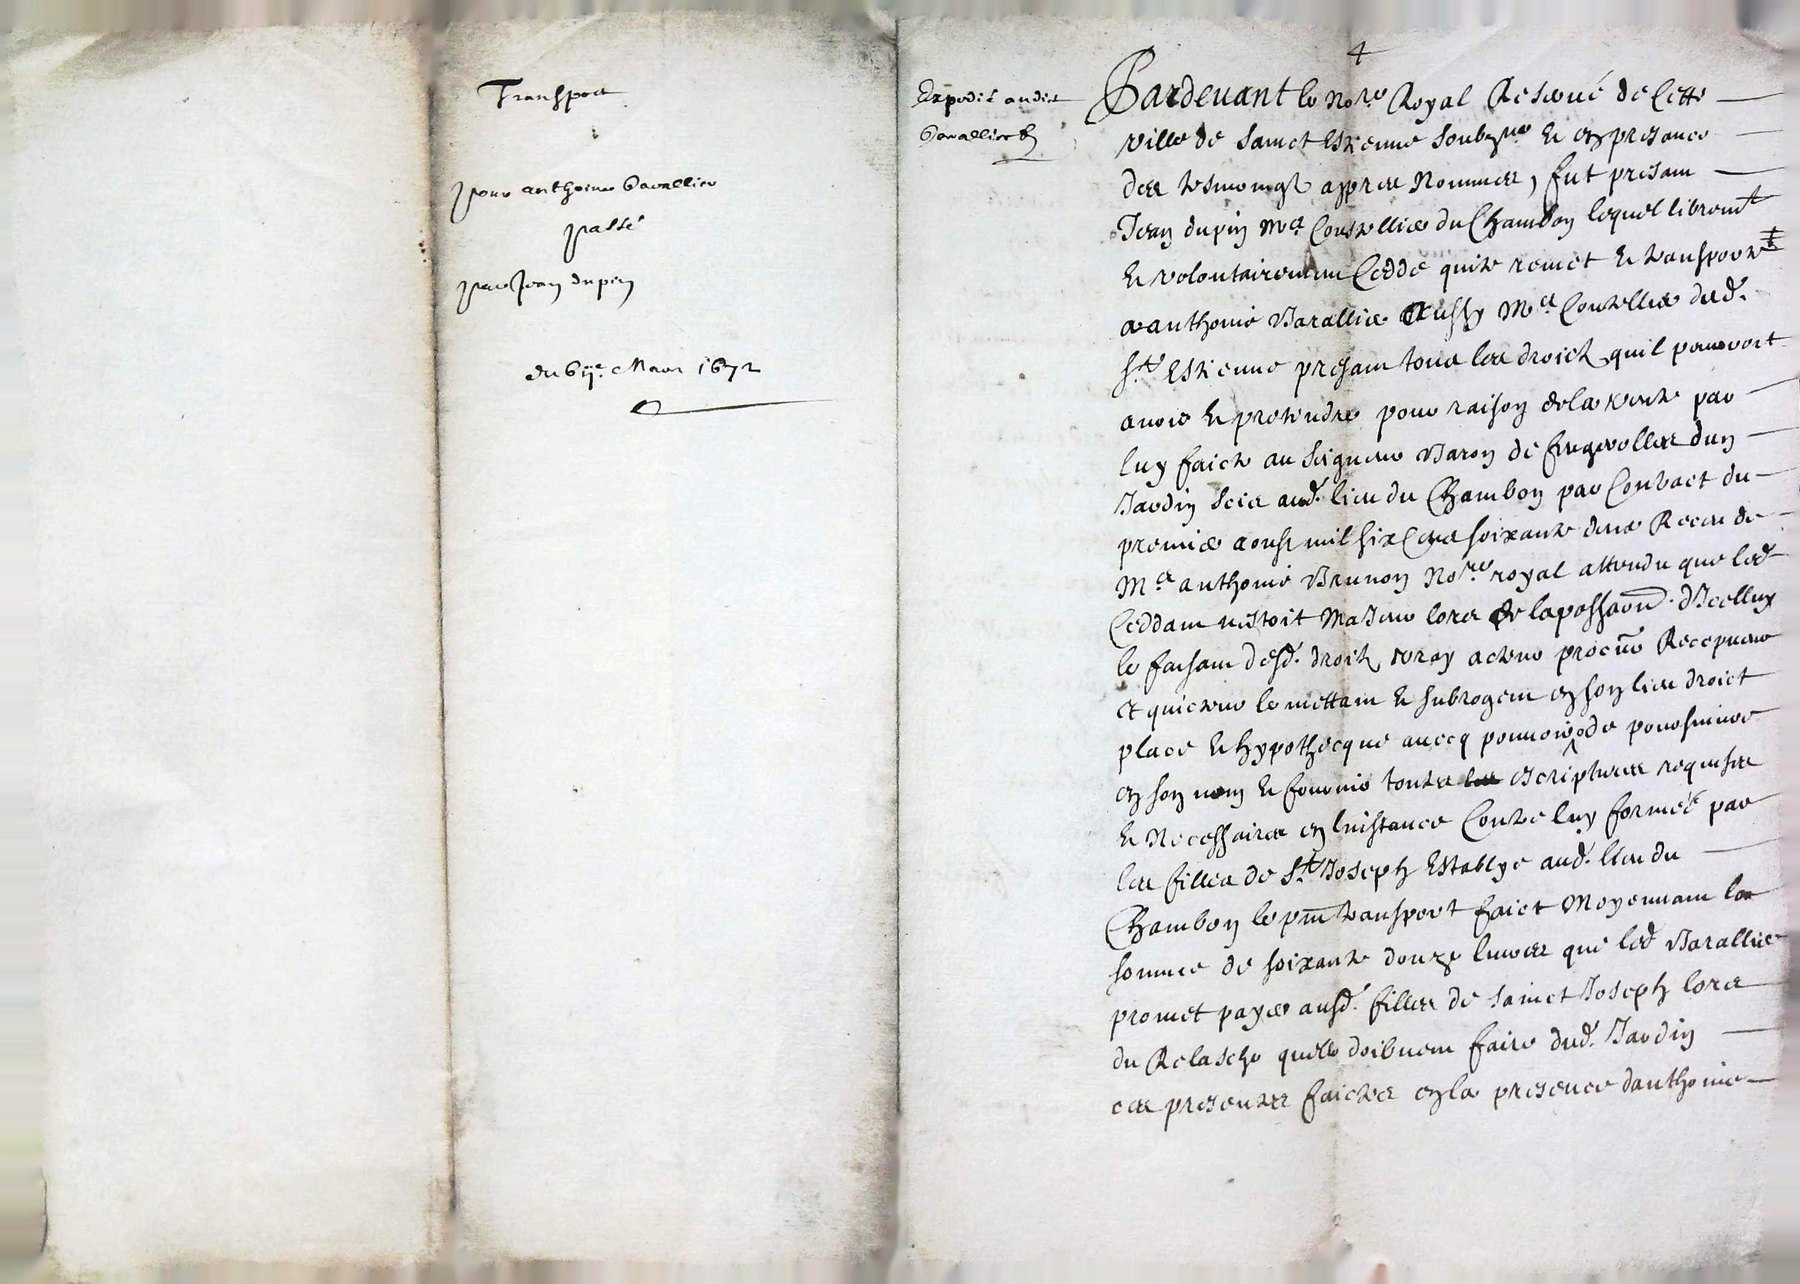 Transport
pour anthoine Varallier
passé
par Jean dupin
du 6ije. Mars 1672
Expedié audit
Varallier
4
Pardevant le Nore Royal Reservé de Cette
ville de sainct Estienne soubzne Et en presance
des tesmoingz appres Nommes, fut presant
Jean dupin Mre Coustellier du Chambon lequel librement
Et volontairement Cedde quite remet Et transporte
a anthoine Varallier Aussy Mre Coutellier dud.
St Estienne presant tous les droictz quil pouvoit
avoir Et pretendre pour raison de la vente par
luy faicte au seigneur Baron de feugerolles dun
Jardin scis aud. lieu du Chambon par Contract du
premier aoust mil six Cens soixante deux Receu de
Mre anthoine Brunon Nore royal attendu que led
Ceddant nestoit Majeur lors de la possaon. dIcelluy
le faisant desd. droictz vray acteur procur Recepveur
et quicteur le mettant Et subrogeant en son lieu droict
place Et hypothecque avecq pouvoir de poursuivre
en son nom Et fournir toutes les escriptures requises
Et Necessaires en linstance Contre luy formée par
les filles de St Joseph Establye aud. lieu du
Chambon le pnt transport faict Moyennant la
somme de soixante douze livres que led Varallier
promet payer ausd. filles de sainct Joseph lors
du Relasche quelle doibvent faire dud. Jardin
ces presentes faictes en la presence danthoine